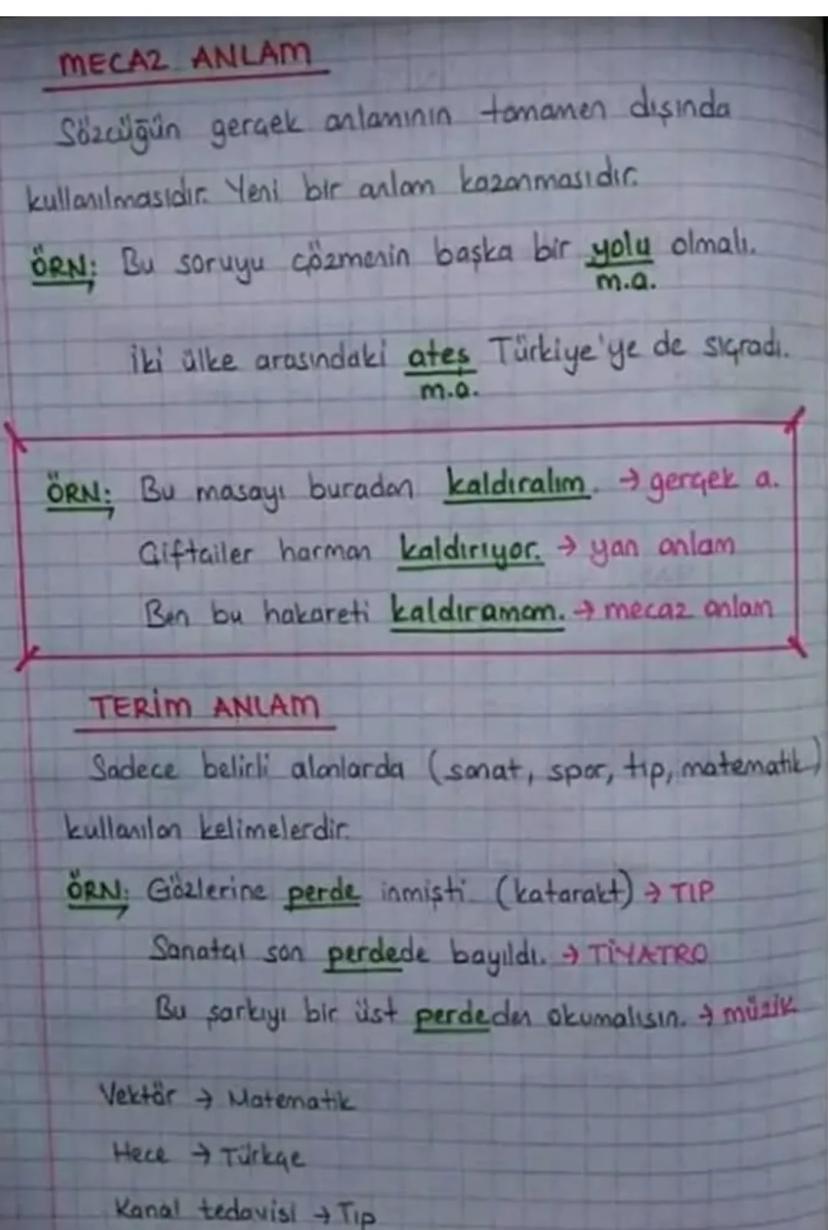 MECAZ ANLAM
Sözcüğün gerçek anlamının tamamen dışında
kullanılmasıdır. Yeni bir anlam kazanmasıdır.
ÖRN; Bu soruyu çözmenin başka bir yolu olmalı.
m.a.
İki ülke arasındaki ateş Türkiye'ye de sıçradı.
m.a.
ÖRN; Bu masayı buradan kaldıralım. → gerçek a.
Çiftçiler harman kaldırıyor. → yan anlam
Ben bu hakareti kaldıramam. → mecaz anlam
TERİM ANLAM
Sadece belirli alanlarda (sanat, spor, tıp, matematik)
kullanılan kelimelerdir.
ÖRN; Gözlerine perde inmişti. (katarakt) → TIP
Sanatçı son perdede bayıldı. → TİYATRO
Bu şarkıyı bir üst perdeden okumalısın. → müzik
Vektör → Matematik
Hece → Türkçe
Kanal tedavisi → Tıp